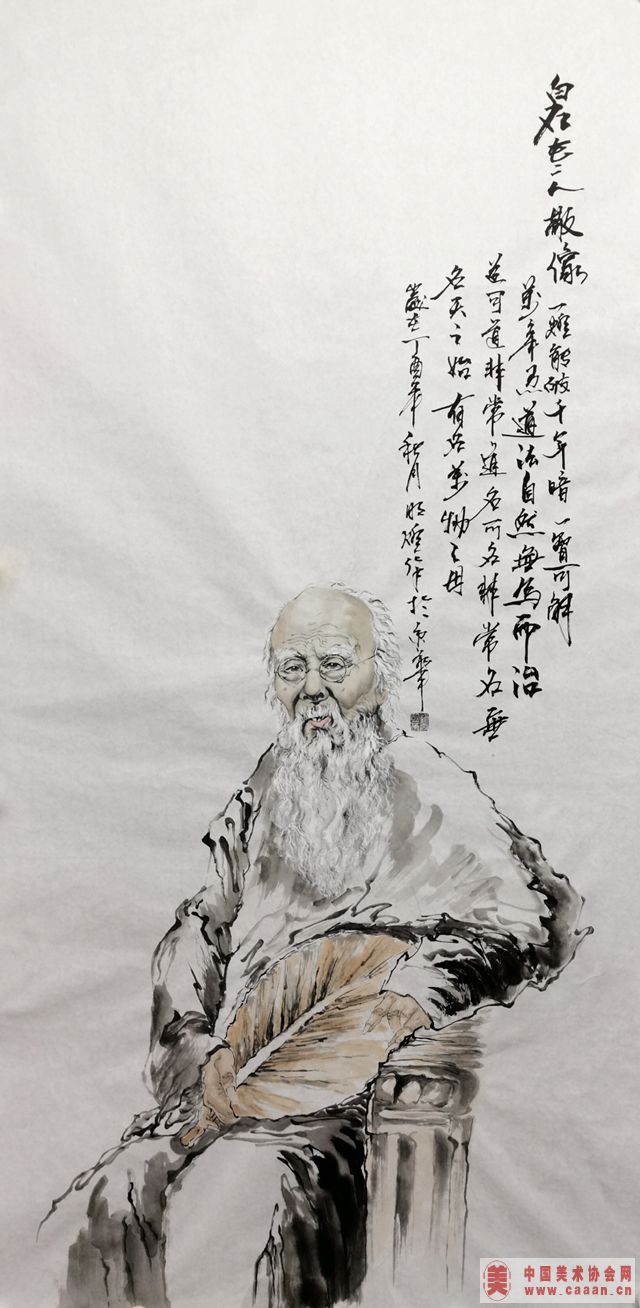 白石老人敬像 一燈能破千年暗 一智可解
萬年愚 道法自然 無為而治
道可道非常道名可名非常名無
名天之始有名萬物之母
歲在丁酉年秋月明燈作於京華
美 中国美术协会网
www.caaan.cn